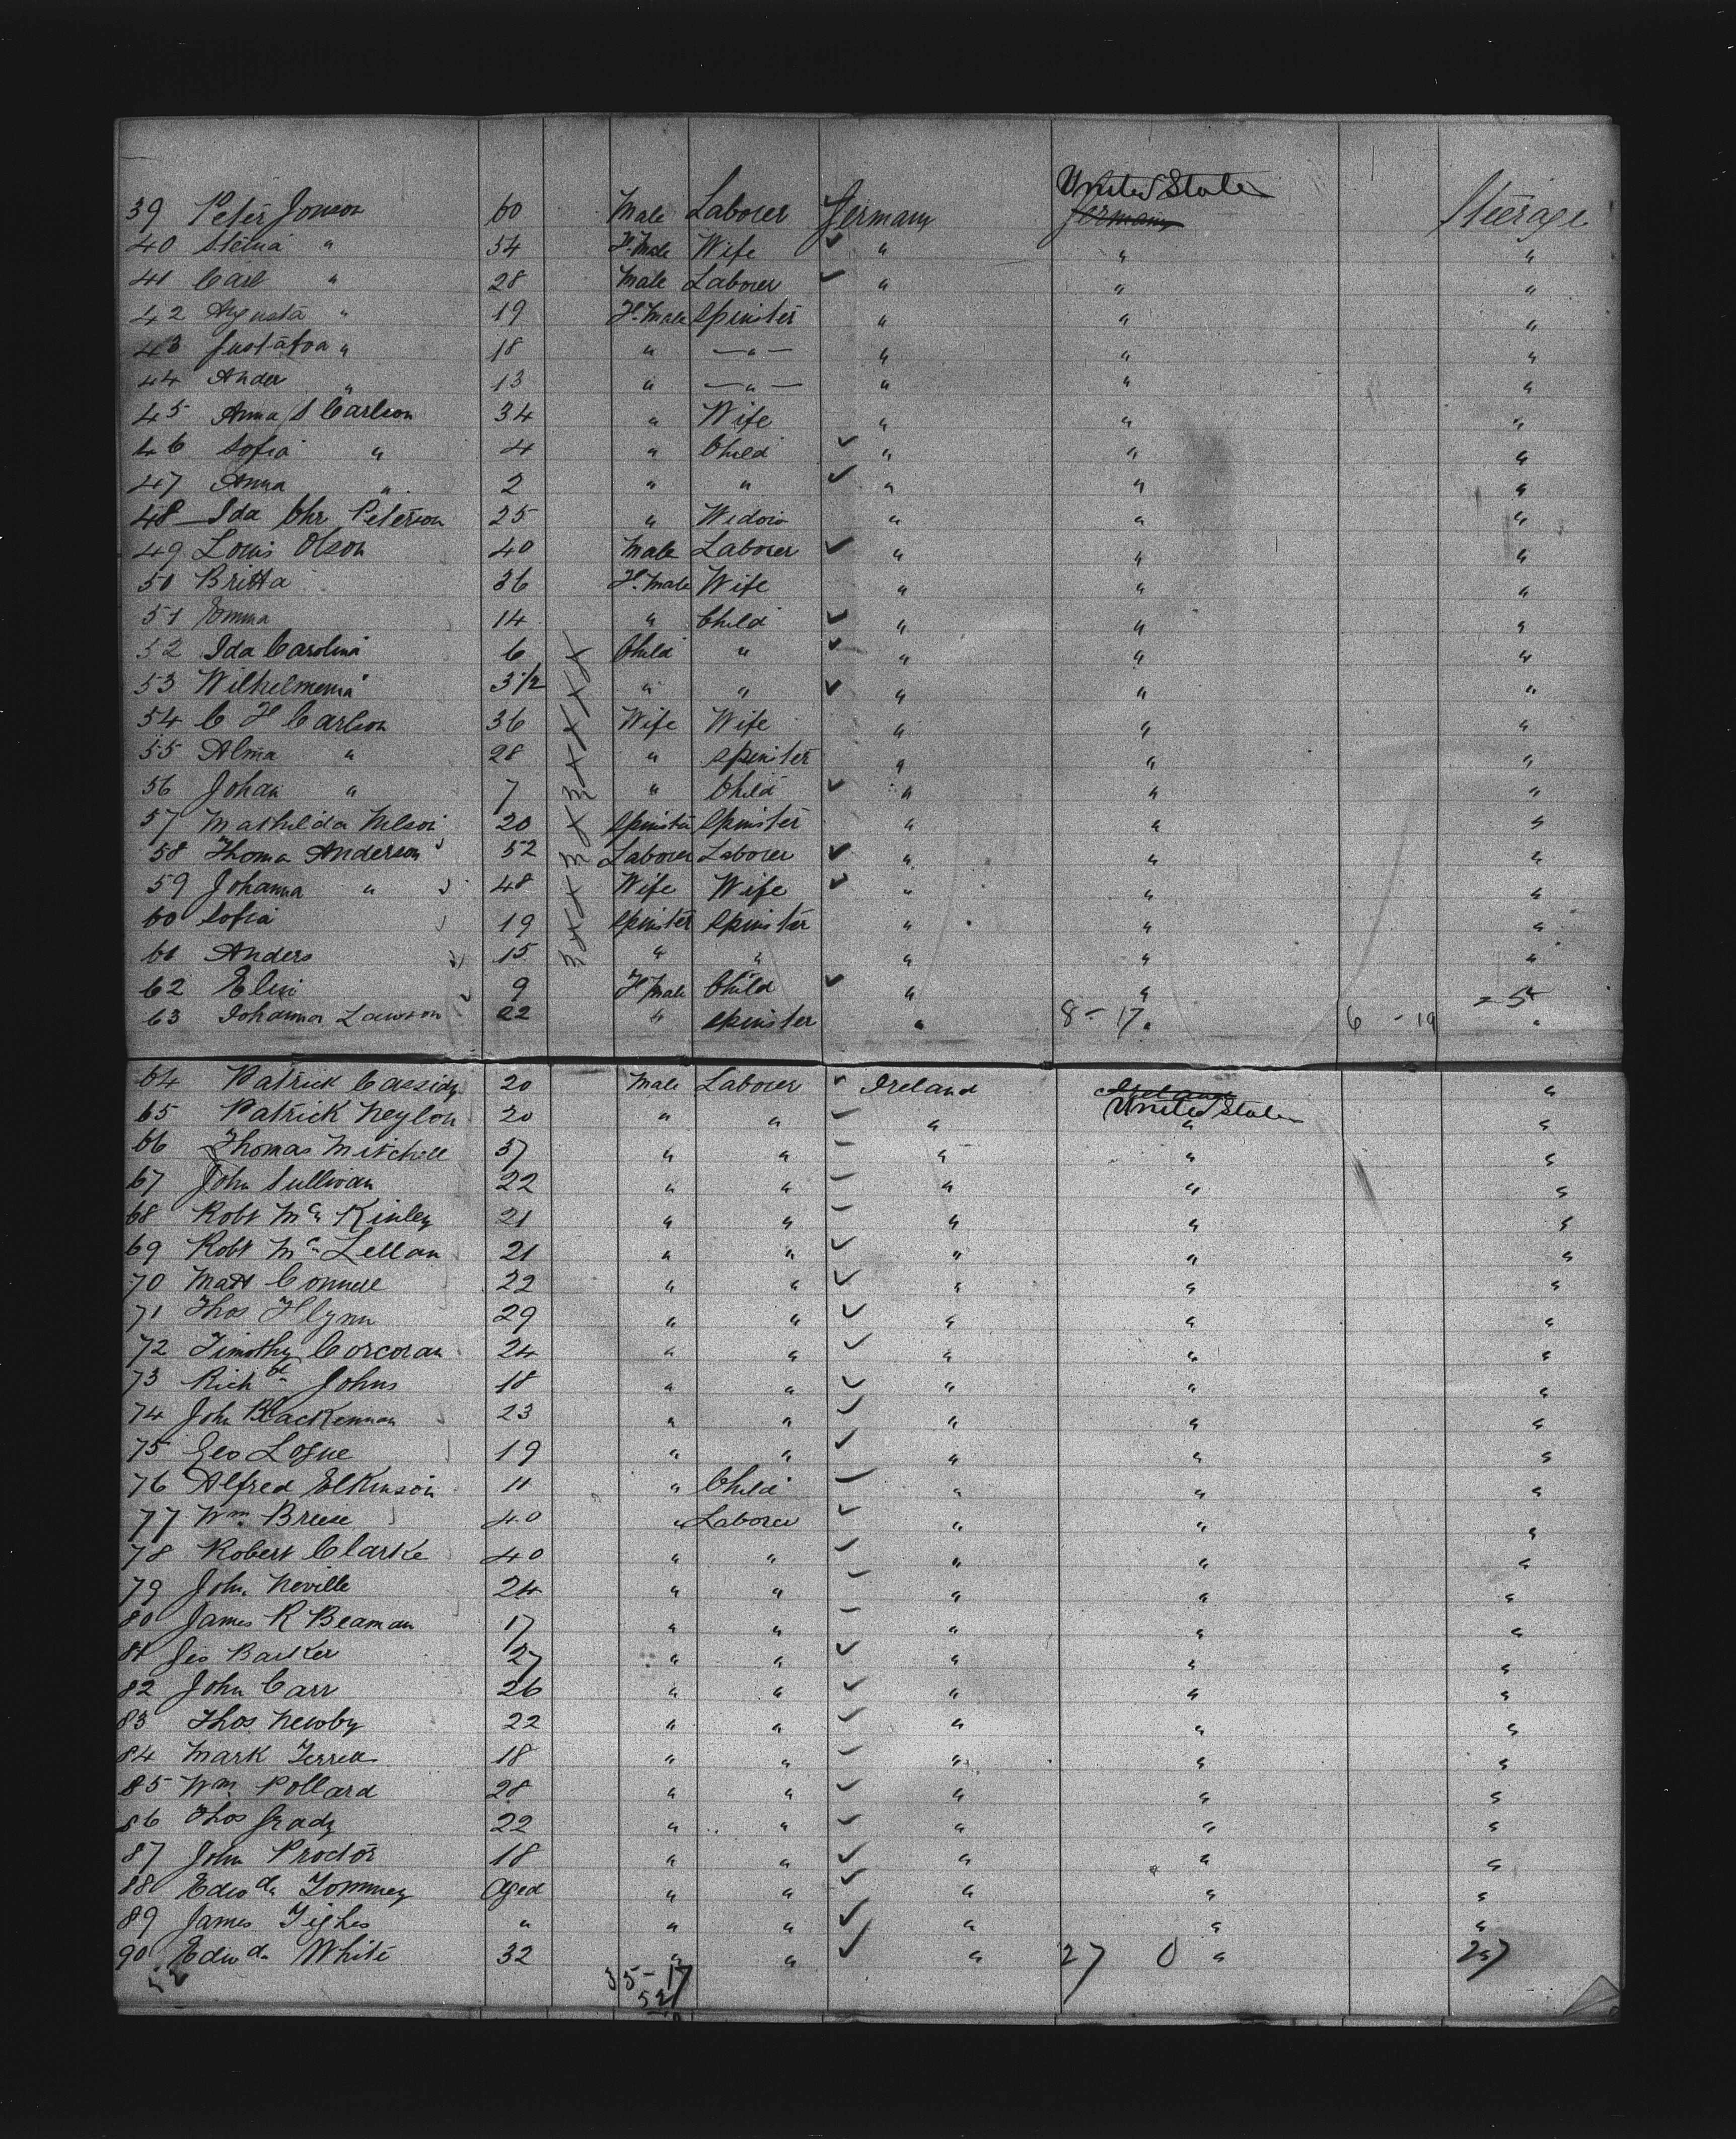 United States
39 Peter Jonson 60 Male Laborer Germany Germany Steerage
40 Stetna " 54 F. Male Wife ✓ " " "
41 Carl " 28 Male Laborer ✓ " " "
42 Augusta " 19 F. Male Spinster " " "
43 Gustafva " 18 " —"— " " "
44 Ander " 13 " —"— " " "
45 Anna S Carlson 34 " Wife " " "
46 Sofia " 4 " Child ✓ " " "
47 Anna " 2 " " ✓ " " "
48 Ida Chr Peterson 25 " Widow " " "
49 Louis Olson 40 Male Laborer ✓ " " "
50 Britta 36 F. Male Wife " " "
51 Emma 14 " Child ✓ " " "
52 Ida Carolina 6 Child " ✓ " " "
53 Wilhelmena 3 1/2 " " ✓ " " "
54 C F Carlson 36 Wife Wife " " "
55 Alma " 28 " Spinster " " "
56 Johan " 7 " Child ✓ " " "
57 Mathilda Nelson 20 Spinster Spinster " " "
58 Thoma Anderson 52 Laborer Laborer ✓ " " "
59 Johanna " 48 Wife Wife ✓ " " "
60 Sofia 19 Spinster Spinster " " "
61 Anders 15 " " " " "
62 Elin 9 F Male Child ✓ " " = 5
63 Johanna Lawson 22 " Spinster " 8 - 17 " 6 - 19 "
64 Patrick Cassidy 20 Male Laborer ✓ Ireland Ireland "
65 Patrick Neylon 20 " " ✓ " United States " "
66 Thomas Mitchell 57 " " " " "
67 John Sullivan 22 " " " " "
68 Robt Mc Kinley 21 " " " " "
69 Robt Mc Lellan 21 " " ✓ " " "
70 Matt Connell 22 " " ✓ " " "
71 Thos Flynn 29 " " ✓ " " "
72 Timothy Corcoran 24 " " ✓ " " "
73 Richd Johns 18 " " ✓ " " "
74 John Blackennan 23 " " ✓ " " "
75 Geo Logue 19 " " ✓ " " "
76 Alfred Elkinson 11 " Child " " "
77 Wm. Breese 40 " Laborer ✓ " " "
78 Robert Clarke 40 " " ✓ " " "
79 John Neville 24 " " " " "
80 James R Beaman 17 " " " " "
81 Geo Barker 27 " " ✓ " " "
82 John Carr 26 " " ✓ " " "
83 Thos Newby 22 " " ✓ " " "
84 Mark Terrell 18 " " ✓ " " "
85 Wm. Pollard 28 " " ✓ " " "
86 Thos Grady 22 " " ✓ " " "
87 John Proctor 18 " " ✓ " " "
88 Edwd. Tommey Aged " " ✓ " " "
89 James Tighes " " " ✓ " " "
90 Edwd. White 32 " " ✓ " 27 0 " 27
52 35 - 17
52